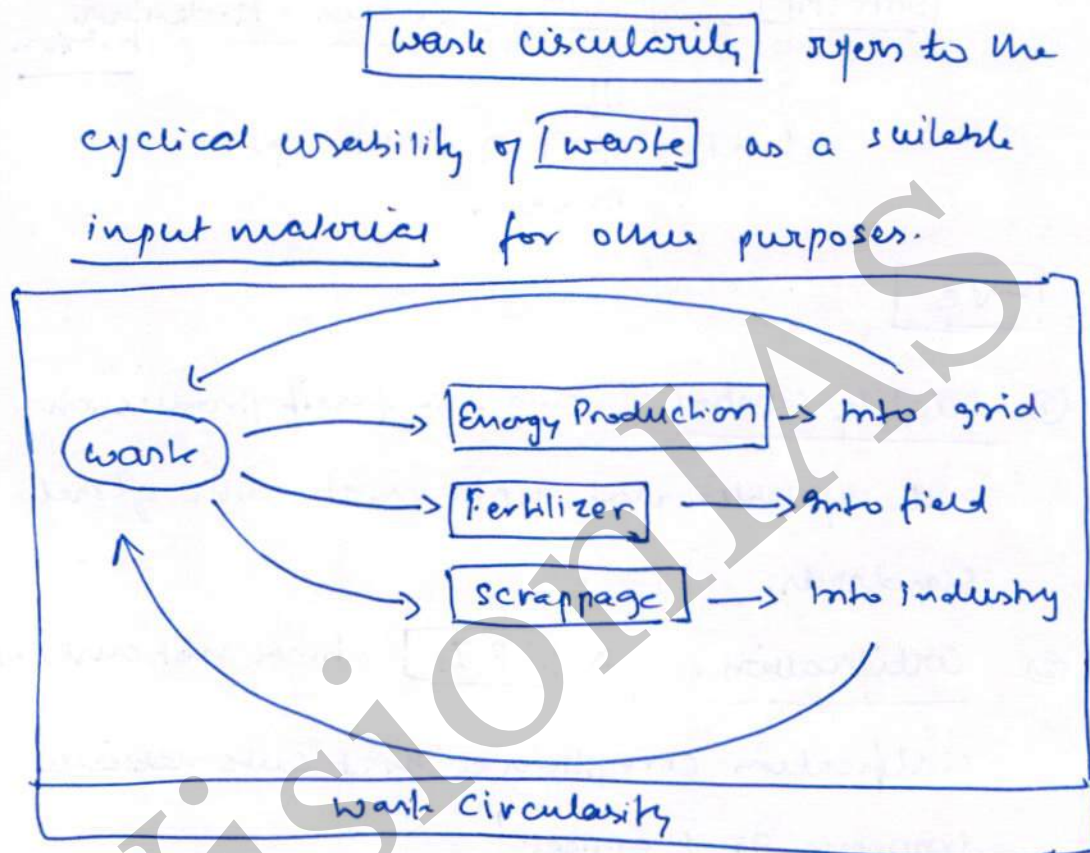 waste circularity refers to the
cyclical usability of waste as a suitable
input material for other purposes.
waste
Energy Production → Into grid
Fertilizer → Into field
Scrappage → Into industry
waste circularity
VisionIAS